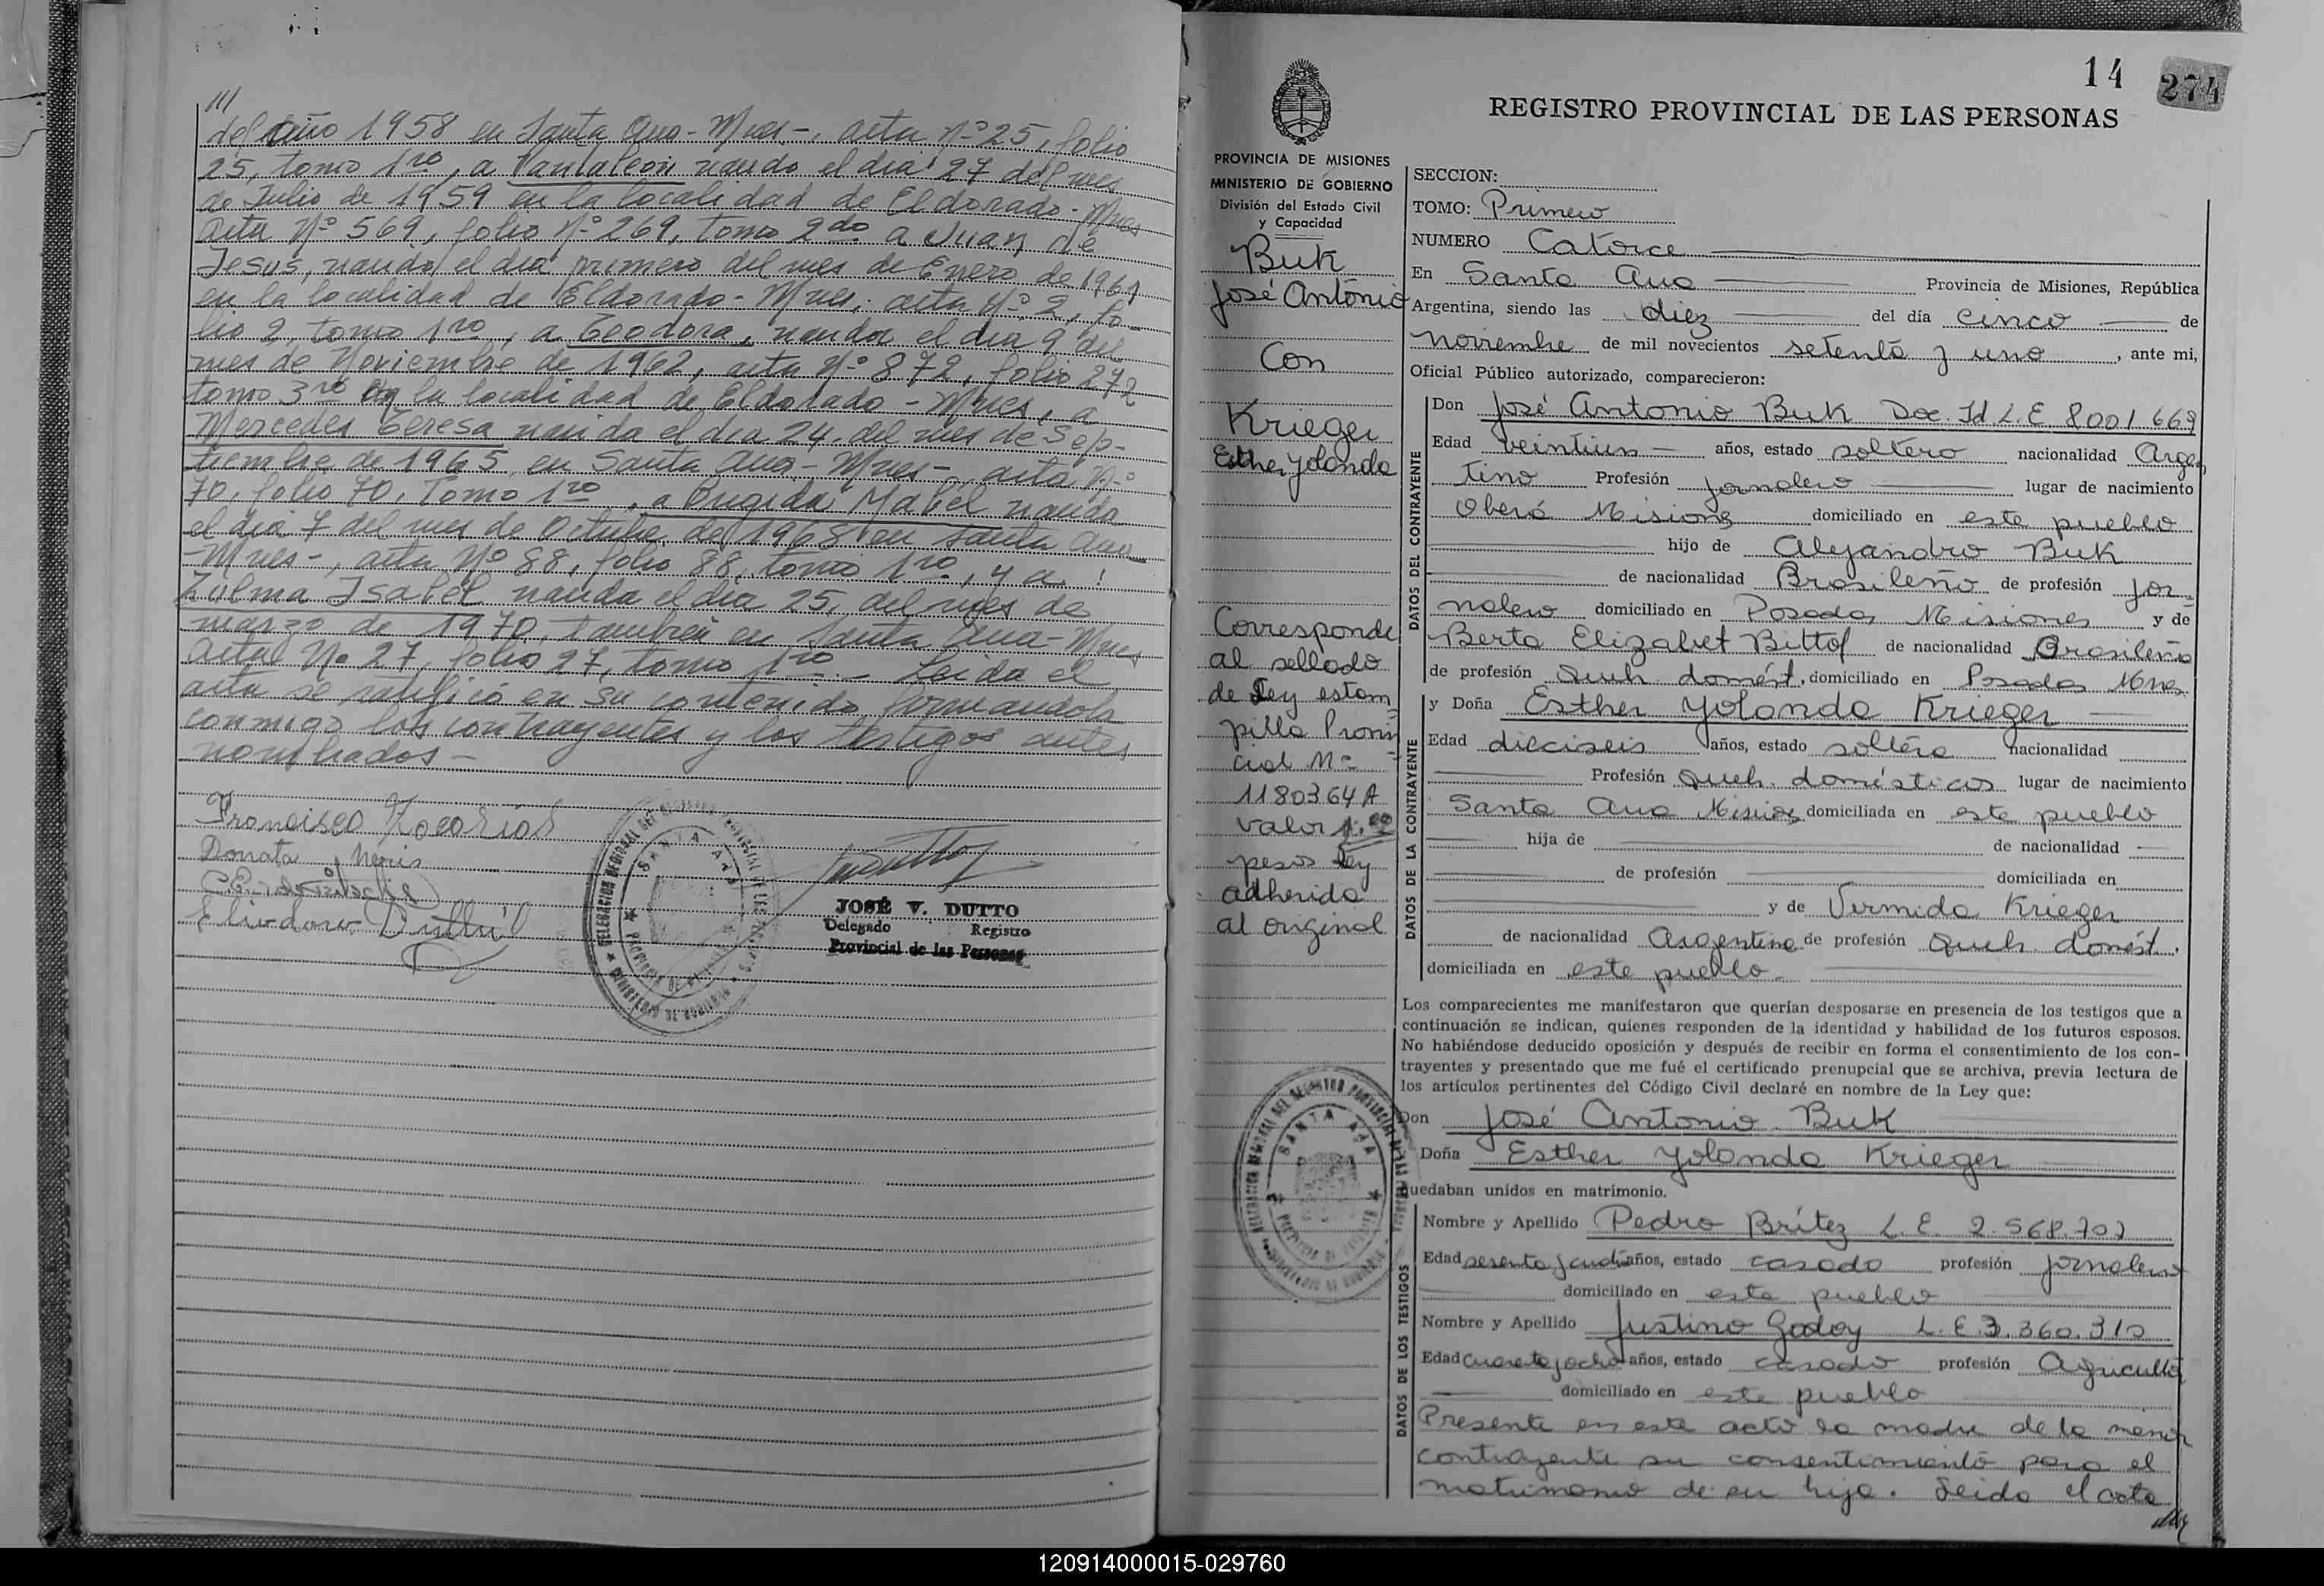 ///
del año 1958 en Santa Ana - Mnes -, acta Nº 25, folio
25, tomo 1ro, a Pantaleón nacido el dia 27 del mes
de Julio de 1959 en la localidad de Eldorado - Mnes
acta Nº 569, folio Nº 269, tomo 2do a Juan de
Jesús, nacido el dia primero del mes de Enero de 1961
en la localidad de Eldorado - Mnes; acta Nº 2, fo-
lio 2, tomo 1ro, a Teodora, nacida el dia 9 del
mes de Noviembre de 1962, acta Nº 872, folio 272
tomo 3ro en la localidad de Eldorado - Mnes, a
Mercedes Teresa nacida el dia 24, del mes de Sep-
tiembre de 1965, en Santa Ana - Mnes -, acta Nº
70, folio 70, Tomo 1ro, a Brigida Mabel nacida
el dia 7 del mes de Octubre de 1968 en Santa Ana
- Mnes -, acta Nº 88, folio 88, tomo 1ro, y a
Zulma Isabel nacida el dia 25, del mes de
marzo de 1970, también en Santa Ana - Mnes
acta Nº 27, folio 27, tomo 1ro - Leida el
acta se ratificó en su contenido firmandola
conmigo los contrayentes y los testigos antes
nombrados -
Francisco
Donata Neris
Eliodoro
SANTA ANA
JOSÉ V. DUTTO
Delegado Registro
Provincial de las Personas
14 274
REGISTRO PROVINCIAL DE LAS PERSONAS
PROVINCIA DE MISIONES
MINISTERIO DE GOBIERNO
División del Estado Civil
y Capacidad
Buk
José Antonio
Con
Krieger
Esther Yolanda
Corresponde
al sellado
de Ley estam
pilla Provin
cial Nº
1180364 A
valor 1.00
pesos ley
adherida
al original
SANTA ANA
SECCION:
TOMO: Primero
NUMERO Catorce
En Santa Ana Provincia de Misiones, República
Argentina, siendo las diez del día cinco de
noviembre de mil novecientos setenta y uno, ante mi,
Oficial Público autorizado, comparecieron:
DATOS DEL CONTRAYENTE
Don José Antonio Buk Doc. Id L.E. 8001669
Edad veintiun años, estado soltero nacionalidad Argen
tino Profesión jornalero lugar de nacimiento
Oberá Misiones domiciliado en este pueblo
hijo de Alejandro Buk
de nacionalidad Brasileño de profesión jor
nalero domiciliado en Posadas Misiones y de
Berta Elizabet Bittof de nacionalidad Brasileña
de profesión Queh. domést. domiciliado en Posadas Mnes
DATOS DE LA CONTRAYENTE
y Doña Esther Yolanda Krieger
Edad dieciseis años, estado soltera nacionalidad
Profesión Queh. domésticos lugar de nacimiento
Santa Ana Misiones domiciliada en este pueblo
hija de de nacionalidad
de profesión domiciliada en
y de Vermida Krieger
de nacionalidad Argentina de profesión Queh. domést.
domiciliada en este pueblo
Los comparecientes me manifestaron que querían desposarse en presencia de los testigos que a
continuación se indican, quienes responden de la identidad y habilidad de los futuros esposos.
No habiéndose deducido oposición y después de recibir en forma el consentimiento de los con-
trayentes y presentado que me fué el certificado prenupcial que se archiva, previa lectura de
los artículos pertinentes del Código Civil declaré en nombre de la Ley que:
Don José Antonio Buk
Doña Esther Yolanda Krieger
quedaban unidos en matrimonio.
DATOS DE LOS TESTIGOS
Nombre y Apellido Pedro Brítez L.E. 2.568.702
Edad sesenta y años, estado casado profesión jornalero
domiciliado en este pueblo
Nombre y Apellido Justino Godoy L.E. 3.360.310
Edad cuarenta y ocho años, estado casado profesión Agricultor
domiciliado en este pueblo
Presente en este acto la madre de la menor
contrayente su consentimiento para el
matrimonio de su hija. Leida el acta
///
120914000015-029760